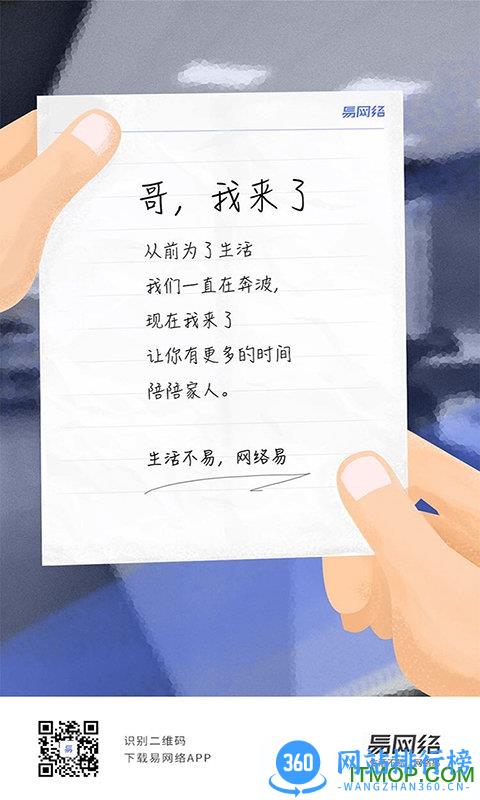 易网络
哥，我来了
从前为了生活
我们一直在奔波，
现在我来了
让你有更多的时间
陪陪家人。
生活不易，网络易
识别二维码
下载易网络APP
易
易网络
360
网站排行榜
WANGZHAN360.CN
ITMOP.COM